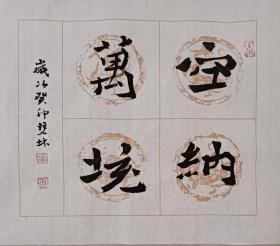 空納
萬境
歲次癸卯雙林